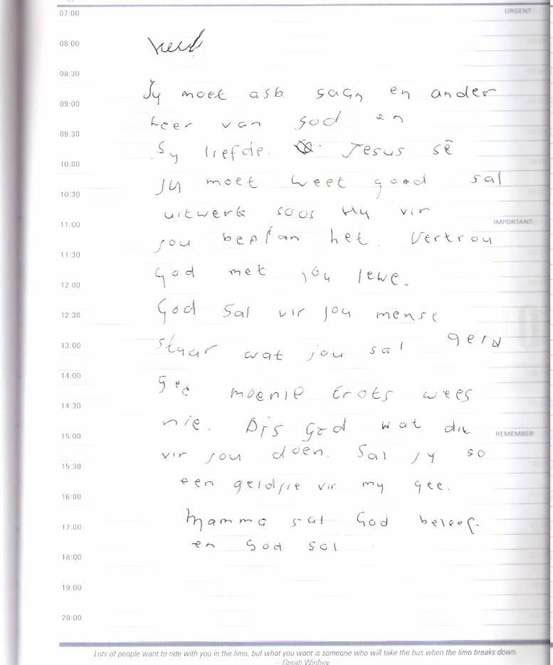 07:00
URGENT
08:00
08:30
Jy moet asb sagn en ander
09:00
Leer van God en
09:30
Sy liefde. Jesus sê
10:00
Jy moet weet good sal
10:30
uitwerk soos Hy vir
11:00
IMPORTANT
jou beplan het. Vertrou
11:30
God met jou lewe.
12:00
God sal vir jou mense
12:30
stuur wat jou sal geld
13:00
gee moenie trots wees
14:00
14:30
nie. Dis God wat dit
15:00
REMEMBER
vir jou doen. Sal jy so
15:30
een geldjie vir my gee.
16:00
Mamma sal God beleef
17:00
en God sal
18:00
19:00
20:00
Lots of people want to ride with you in the limo, but what you want is someone who will take the bus when the limo breaks down.
– Oprah Winfrey